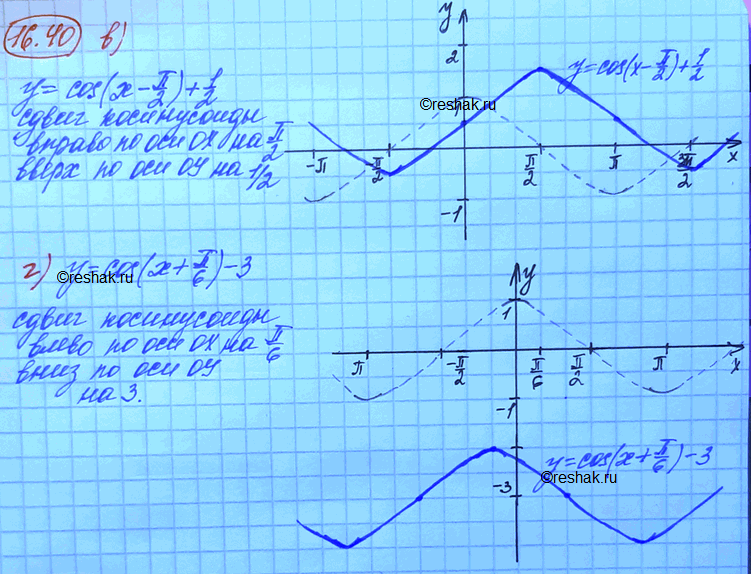 16.40 в)
y = cos(x - π/2) + 1/2
сдвиг косинусоиды
вправо по оси OX на π/2
вверх по оси OY на 1/2
y
2
1
-1
-π
-π/2
π/2
π
3π/2
x
y=cos(x - π/2) + 1/2
©reshak.ru
г) y = cos(x + π/6) - 3
©reshak.ru
сдвиг косинусоиды
влево по оси OX на π/6
вниз по оси OY
на 3.
y
1
π
-π/2
π/6
π/2
π
x
-1
-3
y=cos(x + π/6) - 3
©reshak.ru